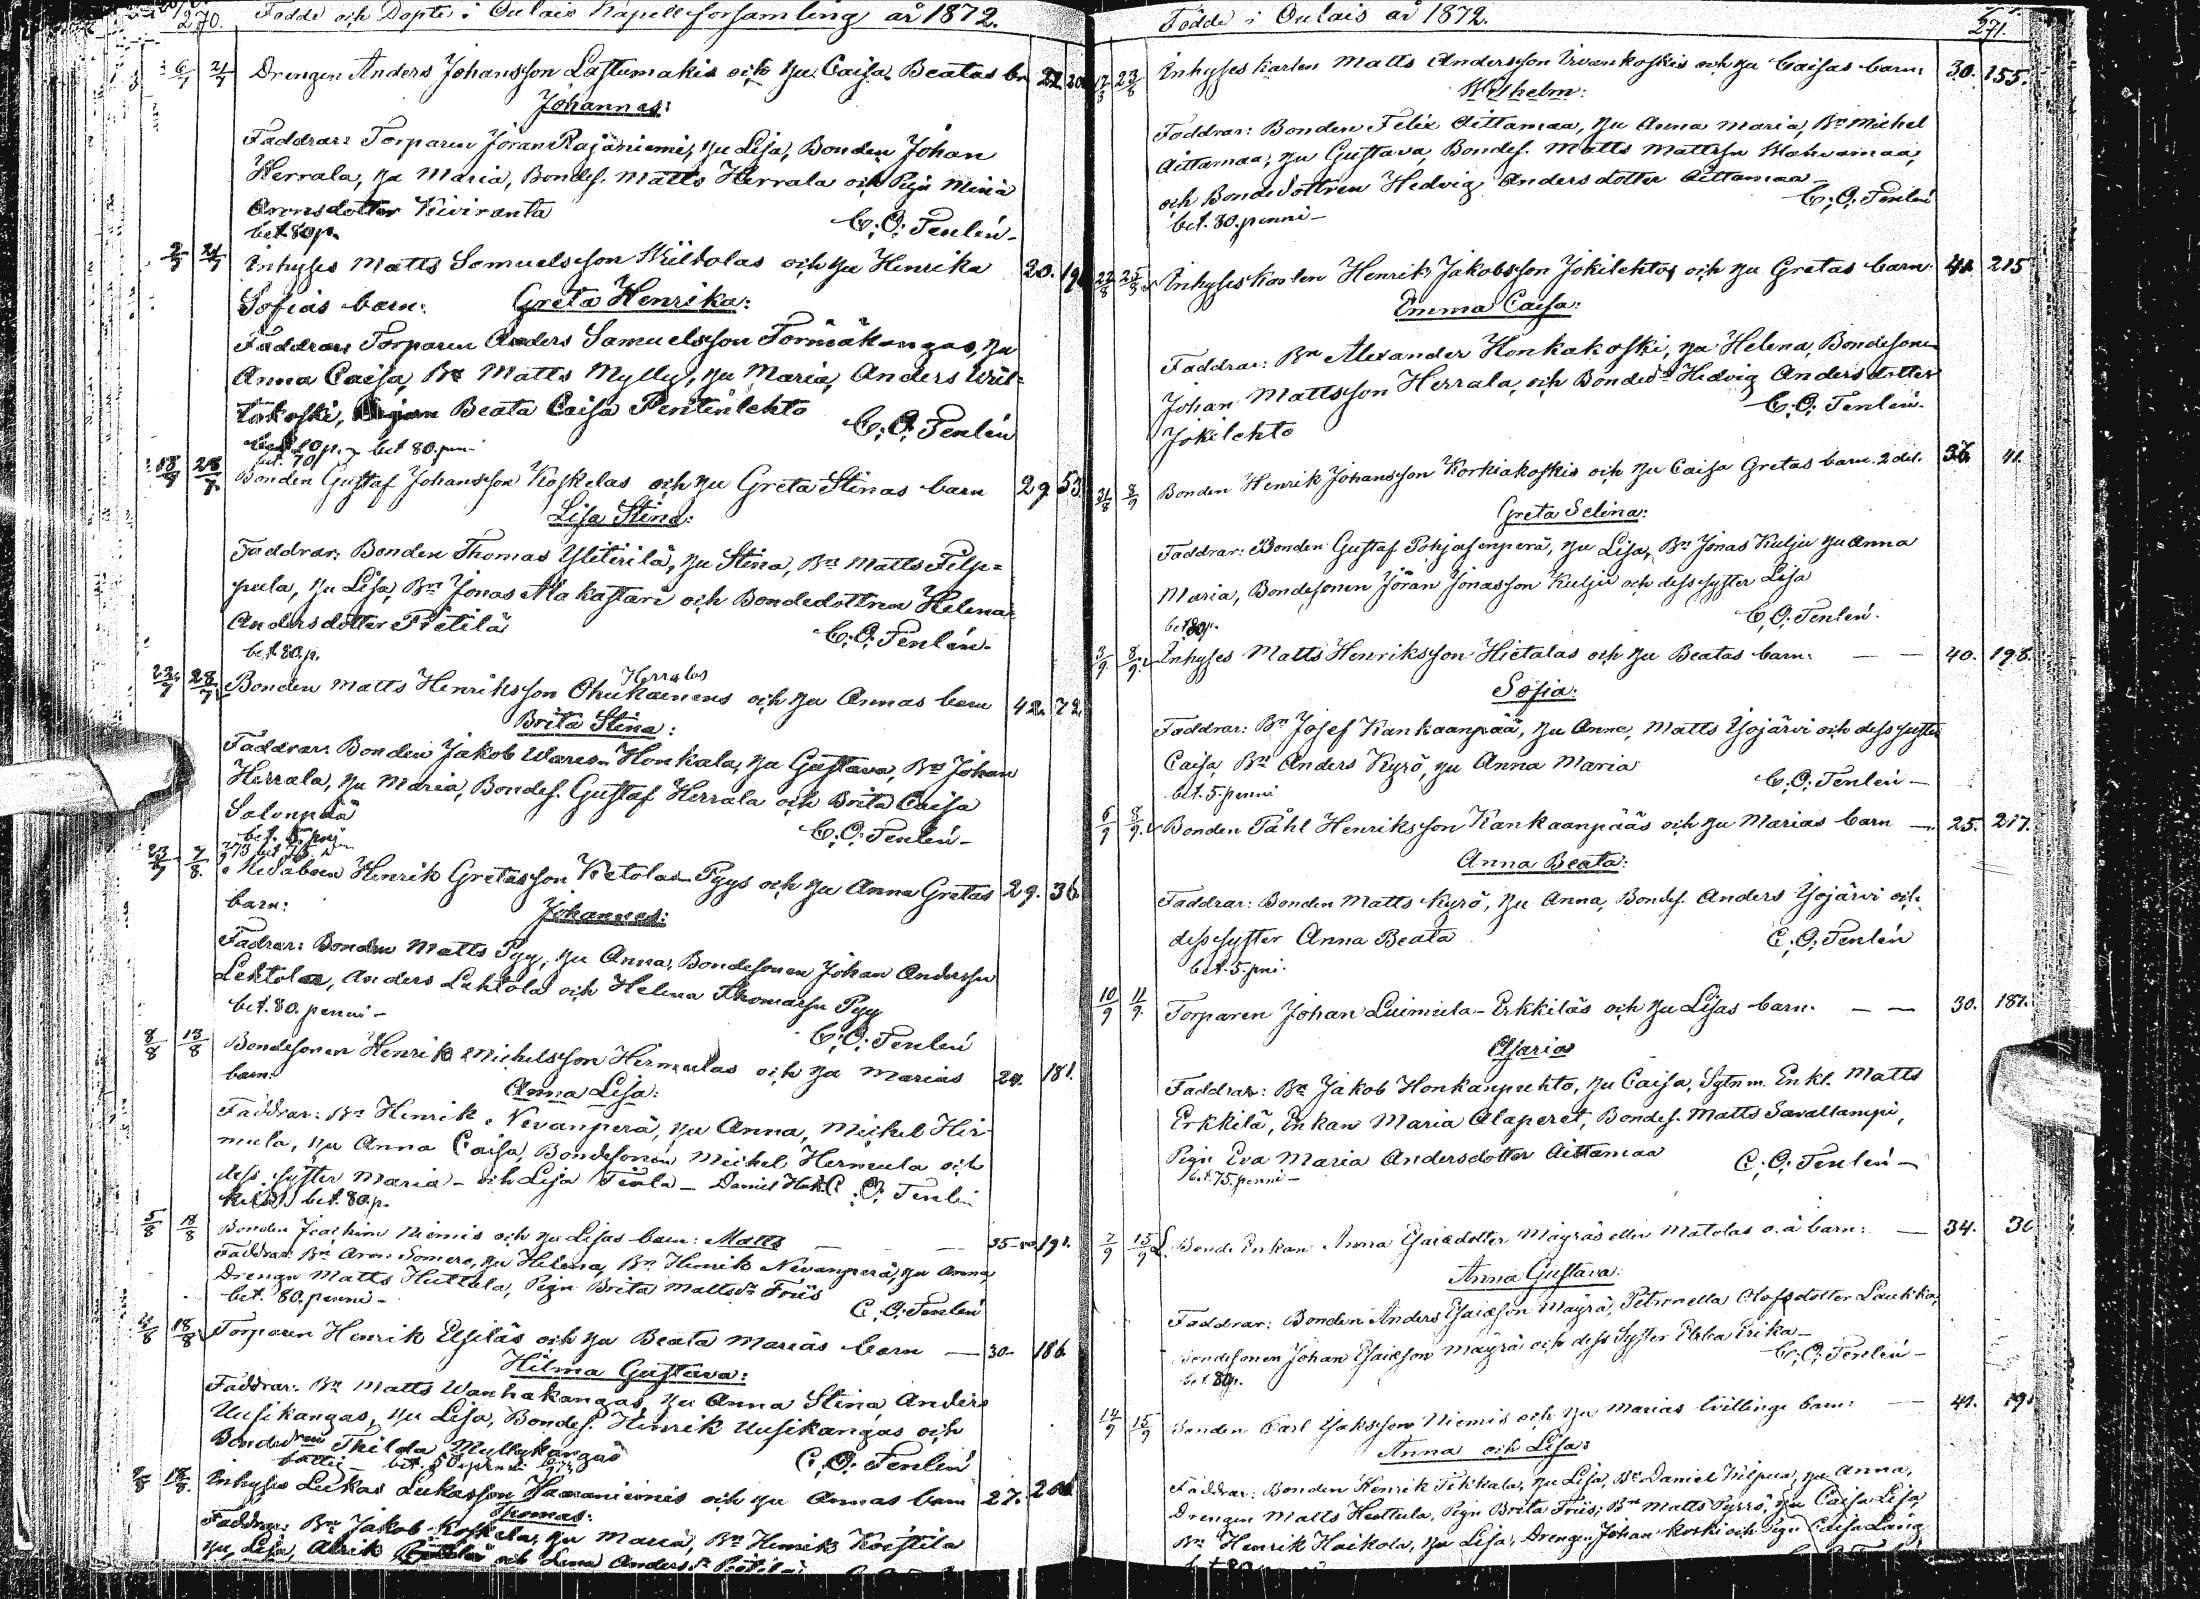 270.
Födde och Döpte i Oulais Kapellförsamling år 1872.
6/7 21/7 Drengen Anders Johansson Lastumäkis och hu Caisa Beatas bn 22
Johannes:
Faddrar: Torparen Jöran Rajaniemi, hu Lisa, Bonden Johan
Herrala, hu Maria, Bondes. Matts Herrala och Pign Mina
Aronsdotter Kiviranta
C. O. Fenlén
bet. 80 p.
21/7 Inhyses Matts Samuelsson Wiitolas och hu Henrika 20. 19
Sofias barn: Greta Henrika:
Faddrar: Torparen Anders Samuelsson Törmäkangas, hu
Anna Caisa, Bn Matts Mylly, hu Maria, Anders Wiit=
takoski, Beata Caisa Penttilehto
C. O. Fenlén
bet 80. pen.
18/7 28/7 Bonden Gustaf Johansson Koskelas och hu Greta Stinas barn 29 53
Lisa Stina:
Faddrar: Bonden Thomas Ylitirilä, hu Stina, Bn Matts Filp=
pula, hu Lisa, Bn Jonas Alakastari och Bondedottren Helena
Andersdotter Pietilä
C. O. Fenlén.
bet. 80. p.
Herralas
28/7 Bonden Matts Henriksson Ohukainens och hu Annas barn 42. 72
Brita Stina:
Faddrar: Bonden Jakob Honkala, hu Gustava, Bn Johan
Herrala, hu Maria, Bondes. Gustaf Herrala och Brita Caisa
Salonpää
C. O. Fenlén
7/8 Henrik Gretasson Ketolas Pyys och hu Anna Gretas 29. 36
barn: Johannes:
Fadrar: Bonden Matts Pyy, hu Anna, Bondesonen Johan Anderssn
Lehtola, Anders Lehtola och Helena Thomassn Pyy
bet. 80. penni
C. O. Fenlén
8/8 13/8 Bondesonen Henrik Michelsson Hirmulas och hu Marias 181.
barn: Anna Lisa:
Faddrar: Bn Henrik Nevanperä, hu Anna, Michel Hir-
mula, hu Anna Caisa, Bondesonen Michel Hermula och
dess syster Maria - och Lisa
C. O. Fenlén
bet. 80. p.
5/8 18/8 Bonden Joachim Niemis och hu Lisas barn: Matts 35 191.
Faddrar: Bn Aron Somero, hu Helena, Bn Henrik Nevanperä, hu Anna,
Drengn Matts Huttula, Pign Brita Mattsdr Friis
bet. 80. penni -
C. O. Fenlén
18/8 Torparen Henrik Elsiläs och hu Beata Marias barn 30 186
Hilma Gustava:
Faddrar: Bn Matts Wanhakangas, hu Anna Stina, Anders
Uusikangas, hu Lisa, Bondes. Henrik Uusikangas och
Thilda Myllykangas
C. O. Fenlén
18/8 Inhyses Lukas Lukasson Haaraniemis och hu Annas barn 27.
Thomas:
Faddrar: Bn Jakob Koskela, hu Maria, Bn Henrik Koistila
hu Lisa, och Lena Anders dr
Födde i Oulais år 1872.
271.
23/8 Inhyses karlen Matts Andersson Irvankoskis och hu Caisas barn: 30. 155.
Wilhelm:
Faddrar: Bonden Felix Aittamaa, hu Anna Maria, Bn Michel
Aittamaa, hu Gustava, Bondes. Matts Mattssn
och Bondedottren Hedvig Andersdotter Aittamaa
C. O. Fenlén
bet. 80. penni -
22/8 25/8 Inhyseskarlen Henrik Jakobsson Jokilehtos och hu Gretas barn 41. 215
Emma Caisa:
Faddrar: Bn Alexander Honkakoski, hu Helena, Bondesonen
Johan Mattsson Herrala, och Bondedr Hedvig Andersdotter
Jokilehto
C. O. Fenlén.
31/8 8/9 Bonden Henrik Johansson Korkiakoskis och hu Caisa Gretas barn. 2 det. 41.
Greta Selina:
Faddrar: Bonden Gustaf Pohjasenperä, hu Lisa, Bn Jonas Kulju hu Anna
Maria, Bondesonen Jöran Jonasson Kulju och dess syster Lisa
C. O. Fenlén.
bet 80 p.
3/9 8/9 Inhyses Matts Henriksson Hietalas och hu Beatas barn. 40. 198.
Sofia:
Faddrar: Bn Josef Kankaanpää, hu Anna, Matts Yojärvi och dess syster
Caisa, Bn Anders Kyrö, hu Anna Maria
C. O. Fenlén -
bet. 5. penni
6/9 8/9 Bonden Påhl Henriksson Kankaanpääs och hu Marias barn 25. 217.
Anna Beata:
Faddrar: Bonden Matts Kyrö, hu Anna, Bondes. Anders Yojärvi och
dess syster Anna Beata
C. O. Fenlén
bet. 5. pni.
10/9 11/9 Torparen Johan Luimula-Erkkiläs och hu Lisas barn. 30. 187.
Esaias
Faddrar: Bn Jakob Honkanpuhto, hu Caisa, Sytnm. Enkl. Matts
Erkkilä, Enkan Maria Alaperet, Bondes. Matts Savallampi,
Pign Eva Maria Andersdotter Aittamaa
C. O. Fenlén -
bet. 75. penni -
7/9 15/9 Bonde Enkan Anna Esaiedotter Mäyräs eller Matolas o. ä barn: 34. 30
Anna Gustava:
Faddrar: Bonden Anders Esaieson Mäyrä, Petronella Olofsdotter Laukka,
Bondesonen Johan Esaieson Mäyrä och dess Syster Ebba Erika -
C. O. Fenlén -
bet. 80 p.
14/9 15/9 Bonden Carl Isaksson Niemis och hu Marias tvillinge barn: 41. 191
Anna och Lisa:
Faddrar: Bonden Henrik Pikkala, hu Lisa, Bn Daniel Kilpua, hu Anna,
Drengen Matts Huttula, Pign Brita Friis; Bn Matts Pyrrö, hu Caisa Lisa,
Bn Henrik Haikola, hu Lisa, Drengn Johan Koski och Pign Caisa Lång